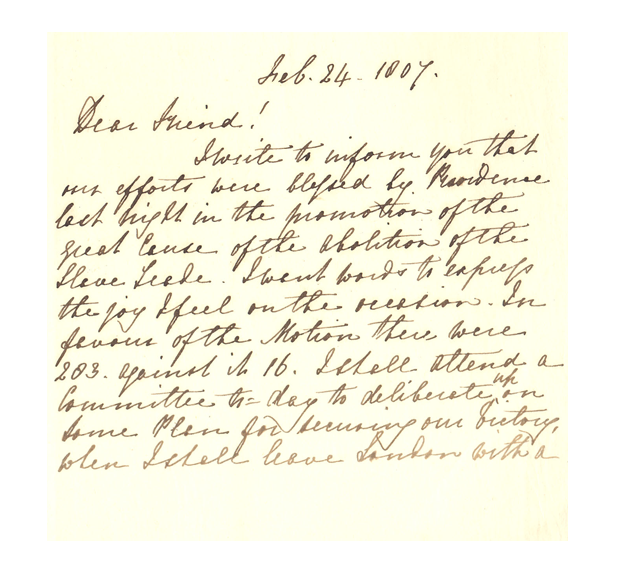 Feb. 24. 1807.
Dear Friend!
I write to inform you that
our efforts were blessed by Providence
last night in the promotion of the
great Cause of the Abolition of the
Slave Trade. I want words to express
the joy I feel on the occasion. In
favour of the Motion there were
283. against it 16. I shall attend a
Committee to=day to deliberate upon
some Plan for securing our Victory,
when I shall leave London with a